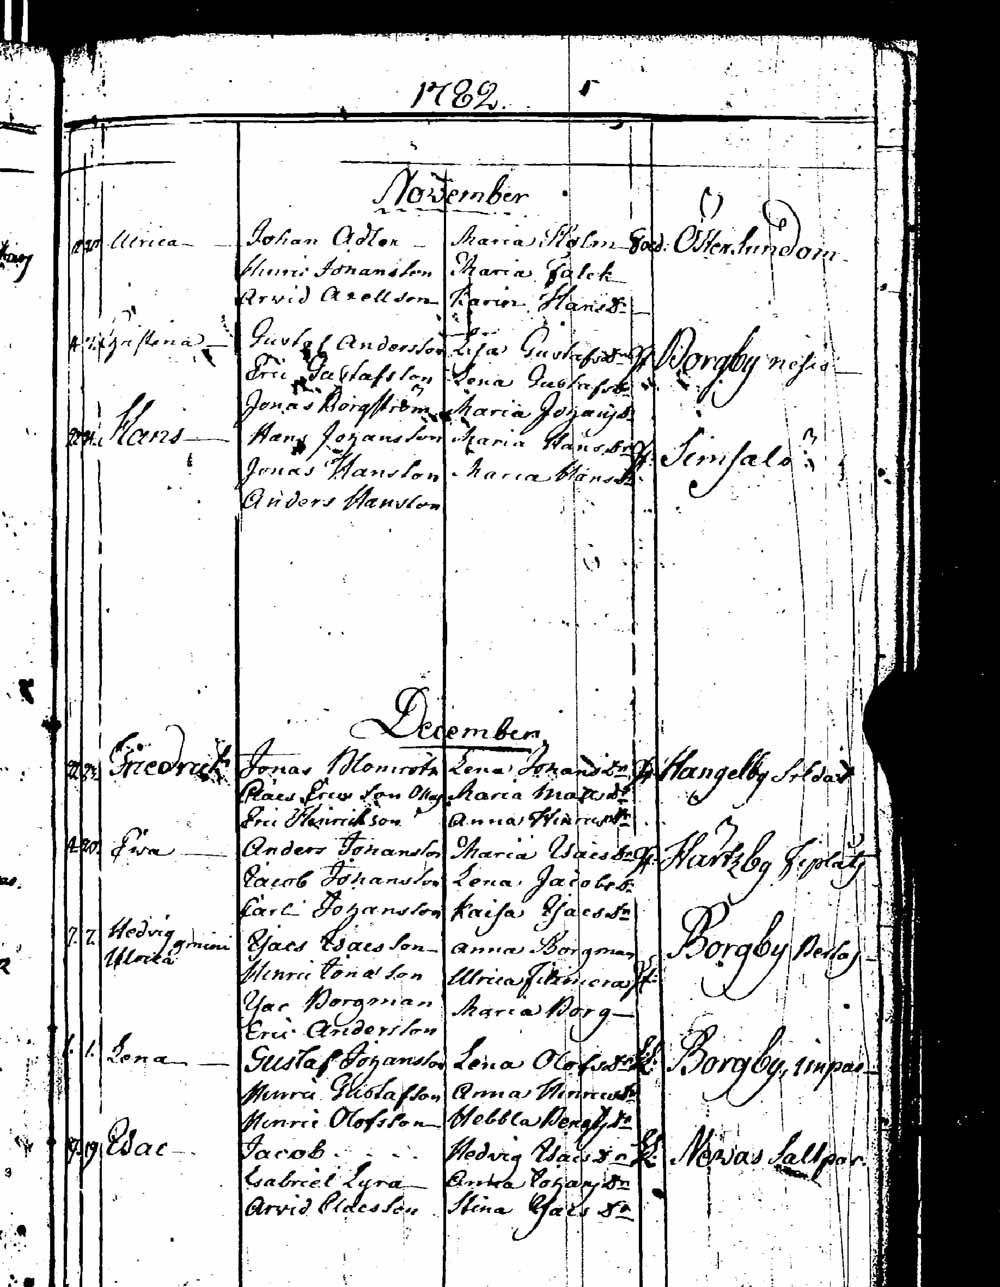 1782.
November
Ulrica Johan Adler Maria Holm Östersundom
Henric Johansson Maria Falck
Arvid Axellson Karin Hansdr
Christina Gustaf Andersson Lisa Gustafsdr Borgby
Eric Gustafsson Lena Gustafsdr
Jonas Borgström Maria Johansdr
Hans Hans Johansson Maria Hansdr Simsalö
Jonas Hansson Maria Hansdr
Anders Hansson
December
Friedrich Jonas Blomroth Lena Johansdr Hangelby Soldat
Claes Ericsson Maria Matsdr
Eric Henrickson Anna Henricsdr
4. 20. Ewa Anders Johansson Maria Isacsdr Hartzby
Jacob Johansson Lena Jacobsdr
Carl Johansson Kaisa Isacsdr
7. 7. Hedvig Isacs Isacsson Anna Borgman Borgby
Ulrica gmini
Henric Jonasson Ulrica
Isac Borgman Maria Borg
Eric Andersson
1. 1. Lena Gustaf Johansson Lena Olofsdr Borgby,
Henric Gustafsson Anna Henricsdr
Henric Olofsson Hebbla Bengtsdr
Isac Jacob Hedvig Isacsdr
Gabriel Lyra Anna Johansdr
Arvid Claesson Stina Isacsdr